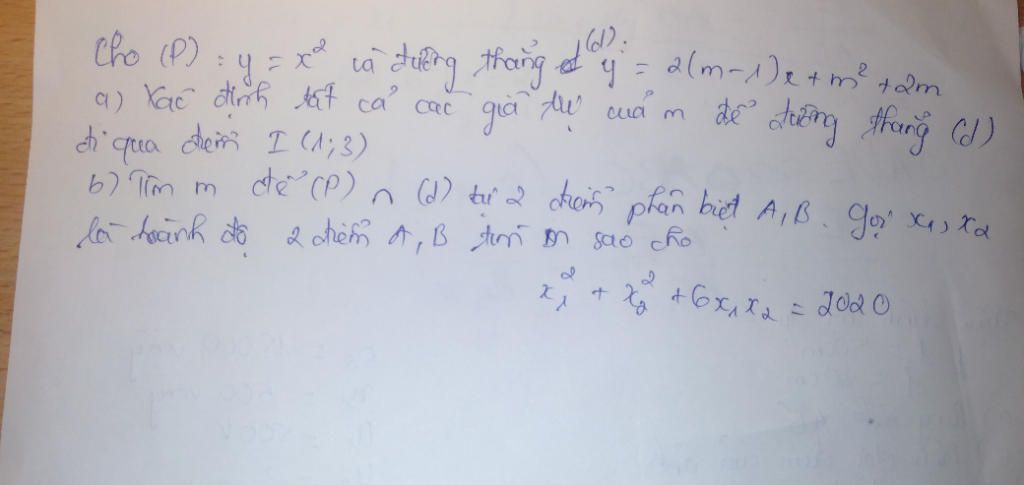 Cho (P) : y = x² và đường thẳng (d): y = 2(m-1)x + m² + 2m
a) Xác định tất cả các giá trị của m để đường thẳng (d)
đi qua điểm I (1;3)
b) Tìm m để (P) ∩ (d) tại 2 điểm phân biệt A, B. Gọi x₁, x₂
là hoành độ 2 điểm A, B tìm m sao cho
x₁² + x₂² + 6x₁x₂ = 2020